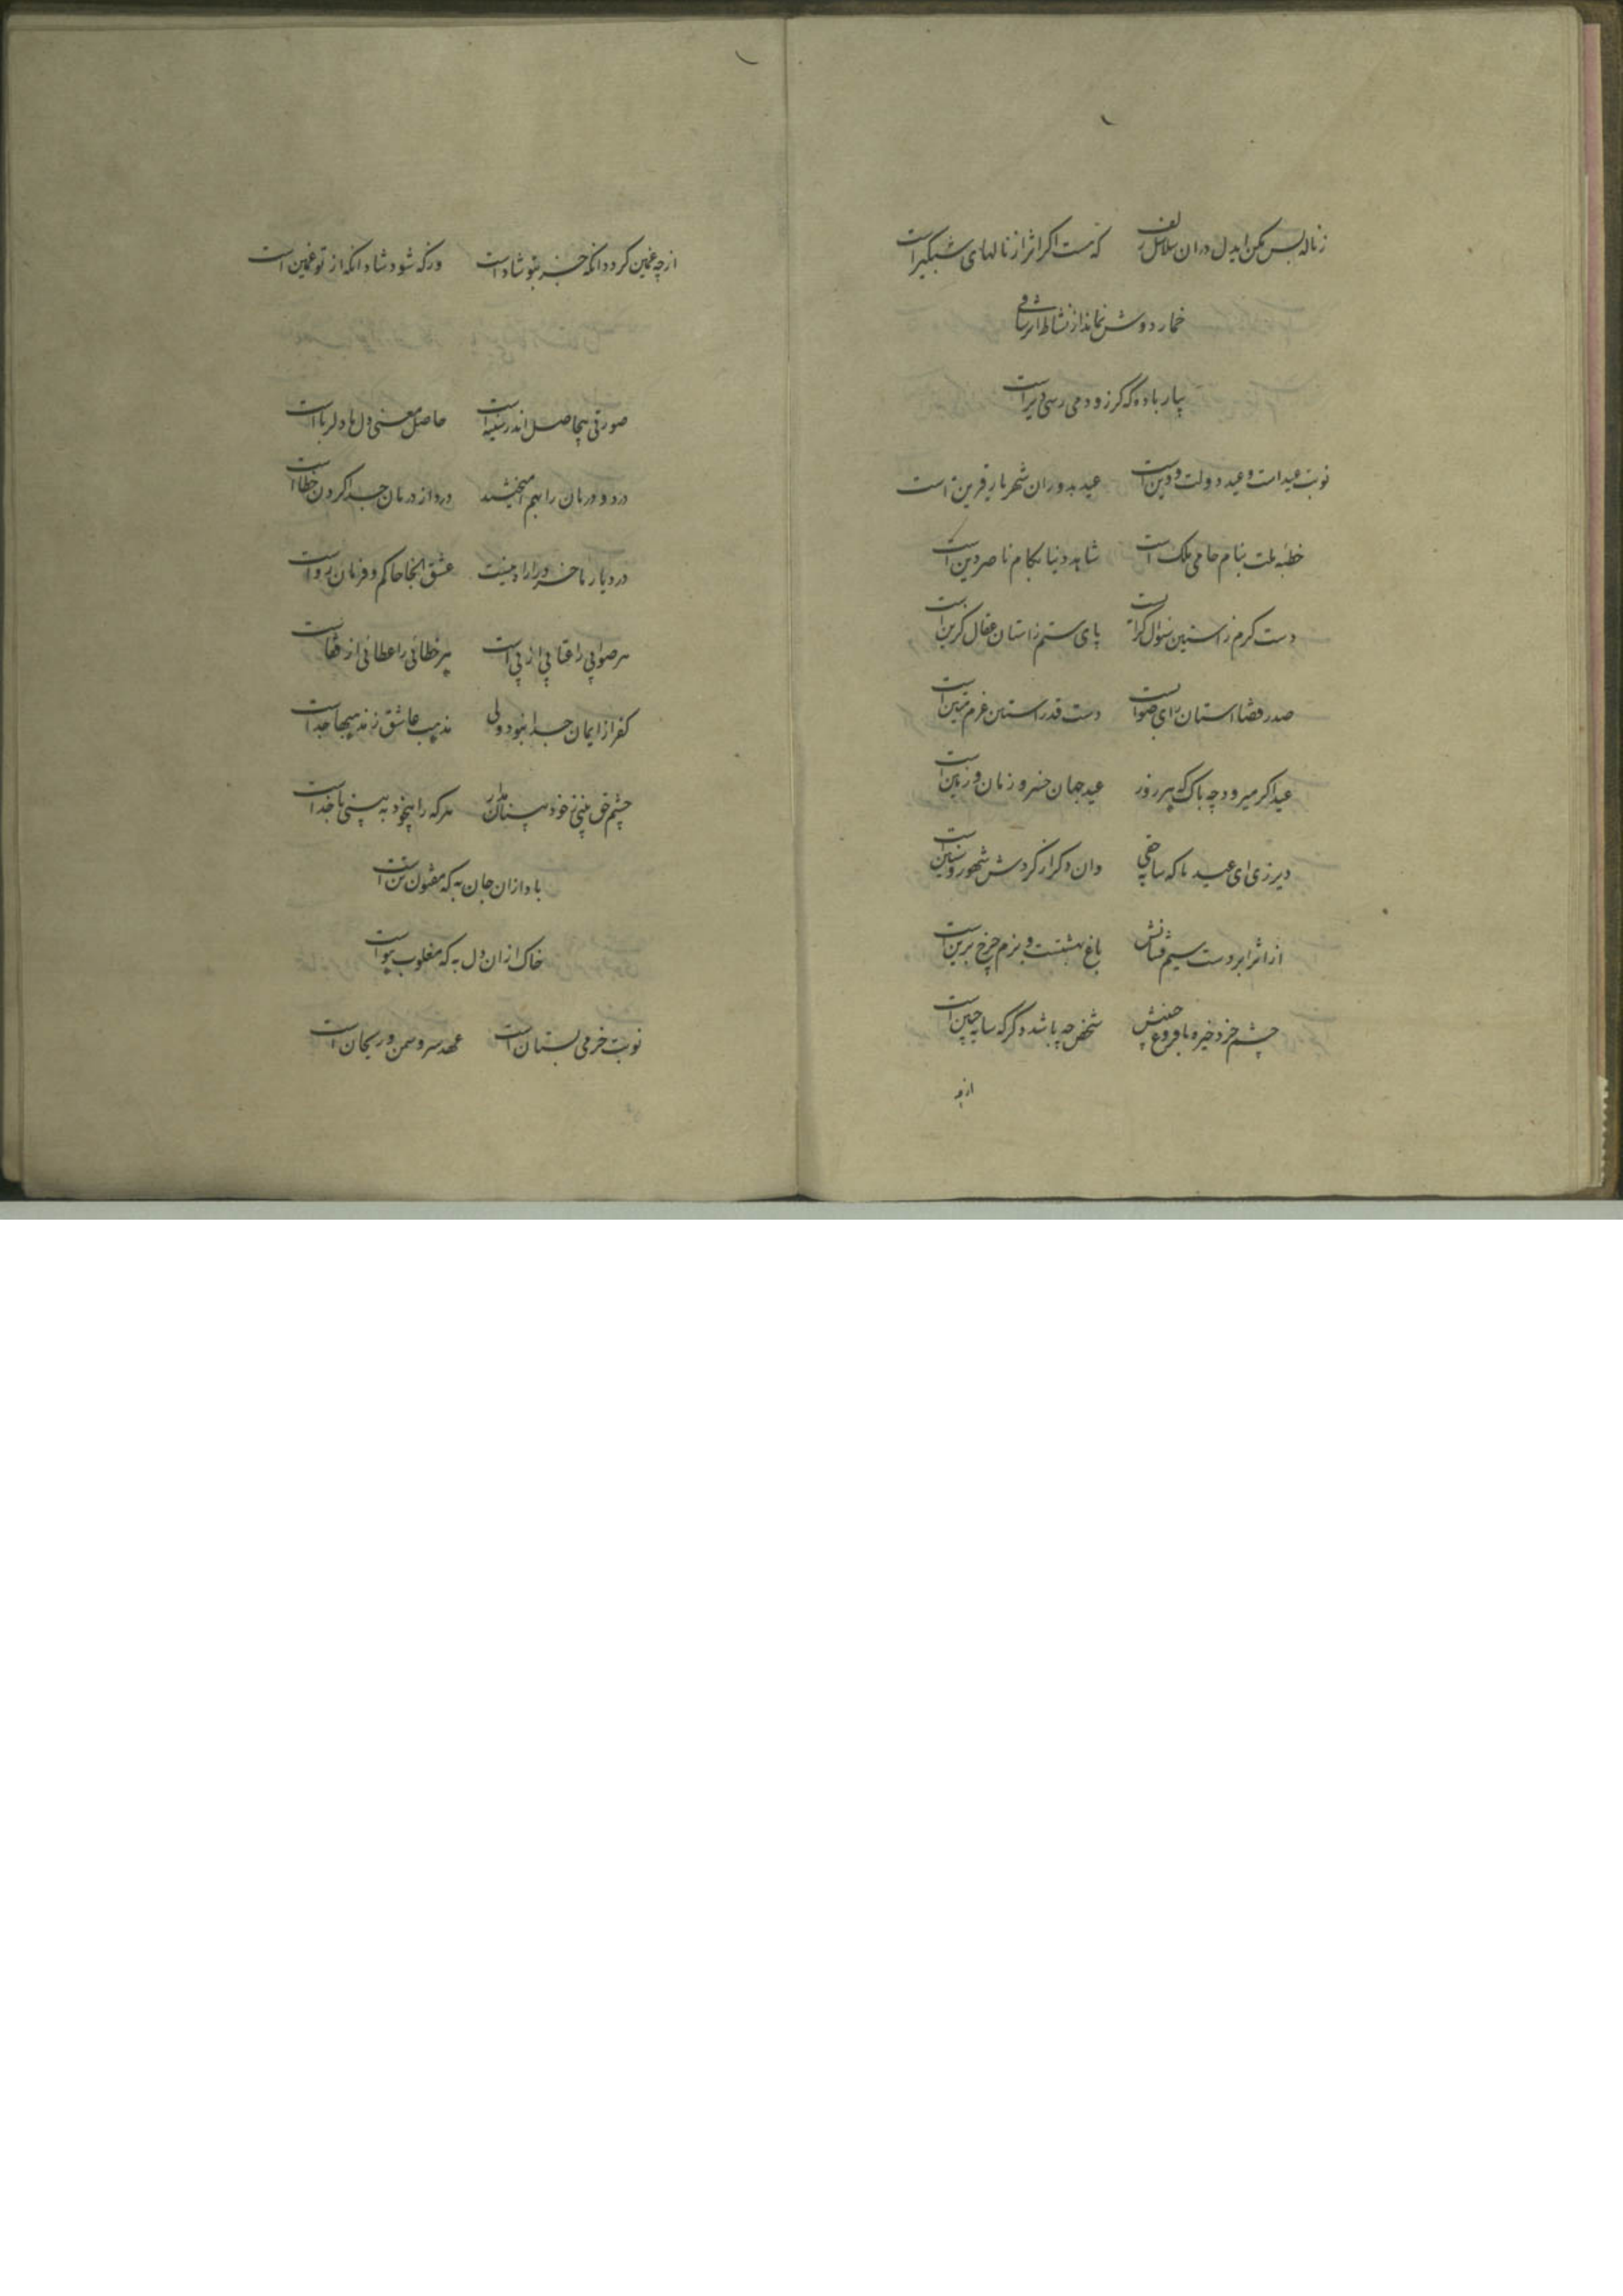 ز ناله بس مکن ایدل در ان سلاسل زلف که هست اکر اثر از نالهای شبکیر است
خمار دوش نماند از نشاط ار ساقی
بیار باده که کر زود می رسی دیر است
نوبت عید است و عید دولت و دین است عید بدوران شهریار قرین است
خطبه ملت بنام حامی ملک است شاهد دنیا بکام ناصر دین است
دست کرم ز استین سؤال است پای ستم ز استان عقال کزین است
صدر قضا استان رای صواب است دست قدر استین عزم متین است
عید اکر میرود چه باک که هر روز عید جهان خسرو زمان و زمین است
دیر زی ای عید ما که سایه حقی وان دکر از کردش شهور و سنین است
از اثر ابر دست سیم فشانش باغ بهشتست و بزم چرخ برین است
چشم خرد خیره با فروغ جبینش شخص چه باشد دکر که سایه چنین است
از چه
از چه غمین کردد انکه جز بتو شاد است ور که شود شاد انکه از تو غمین است
صورتی بیحاصل اندر سینه است حاصل معنی دل‌ها دلرباست
درد و درمان را بهم امیختند درد از درمان جدا کردن خطا است
در دیار ما خرد را راه نیست عشق انجا حاکم و فرمان روا است
هر صوابی را عتابی از پی است هر خطائی را عطائی از قفا است
کفر از ایمان جدا نبود ولی مذهب عاشق ز مذهبها جدا است
چشم حق بینی ز خود بینان مدار هر که را بیخود به بینی با خدا است
باد ازان جان به که مفتون تن است
خاک ازان دل به که مغلوب هوا است
نوبت خرمی بستان است عهد سرو سمن و ریحان است